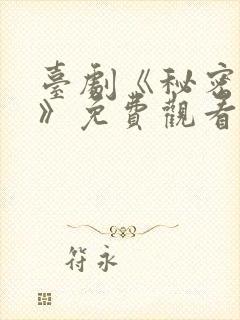 臺劇《秘密
》免費觀看
符永